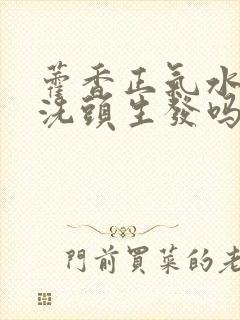 藿香正氣水
洗頭生發嗎
門前買菜的老